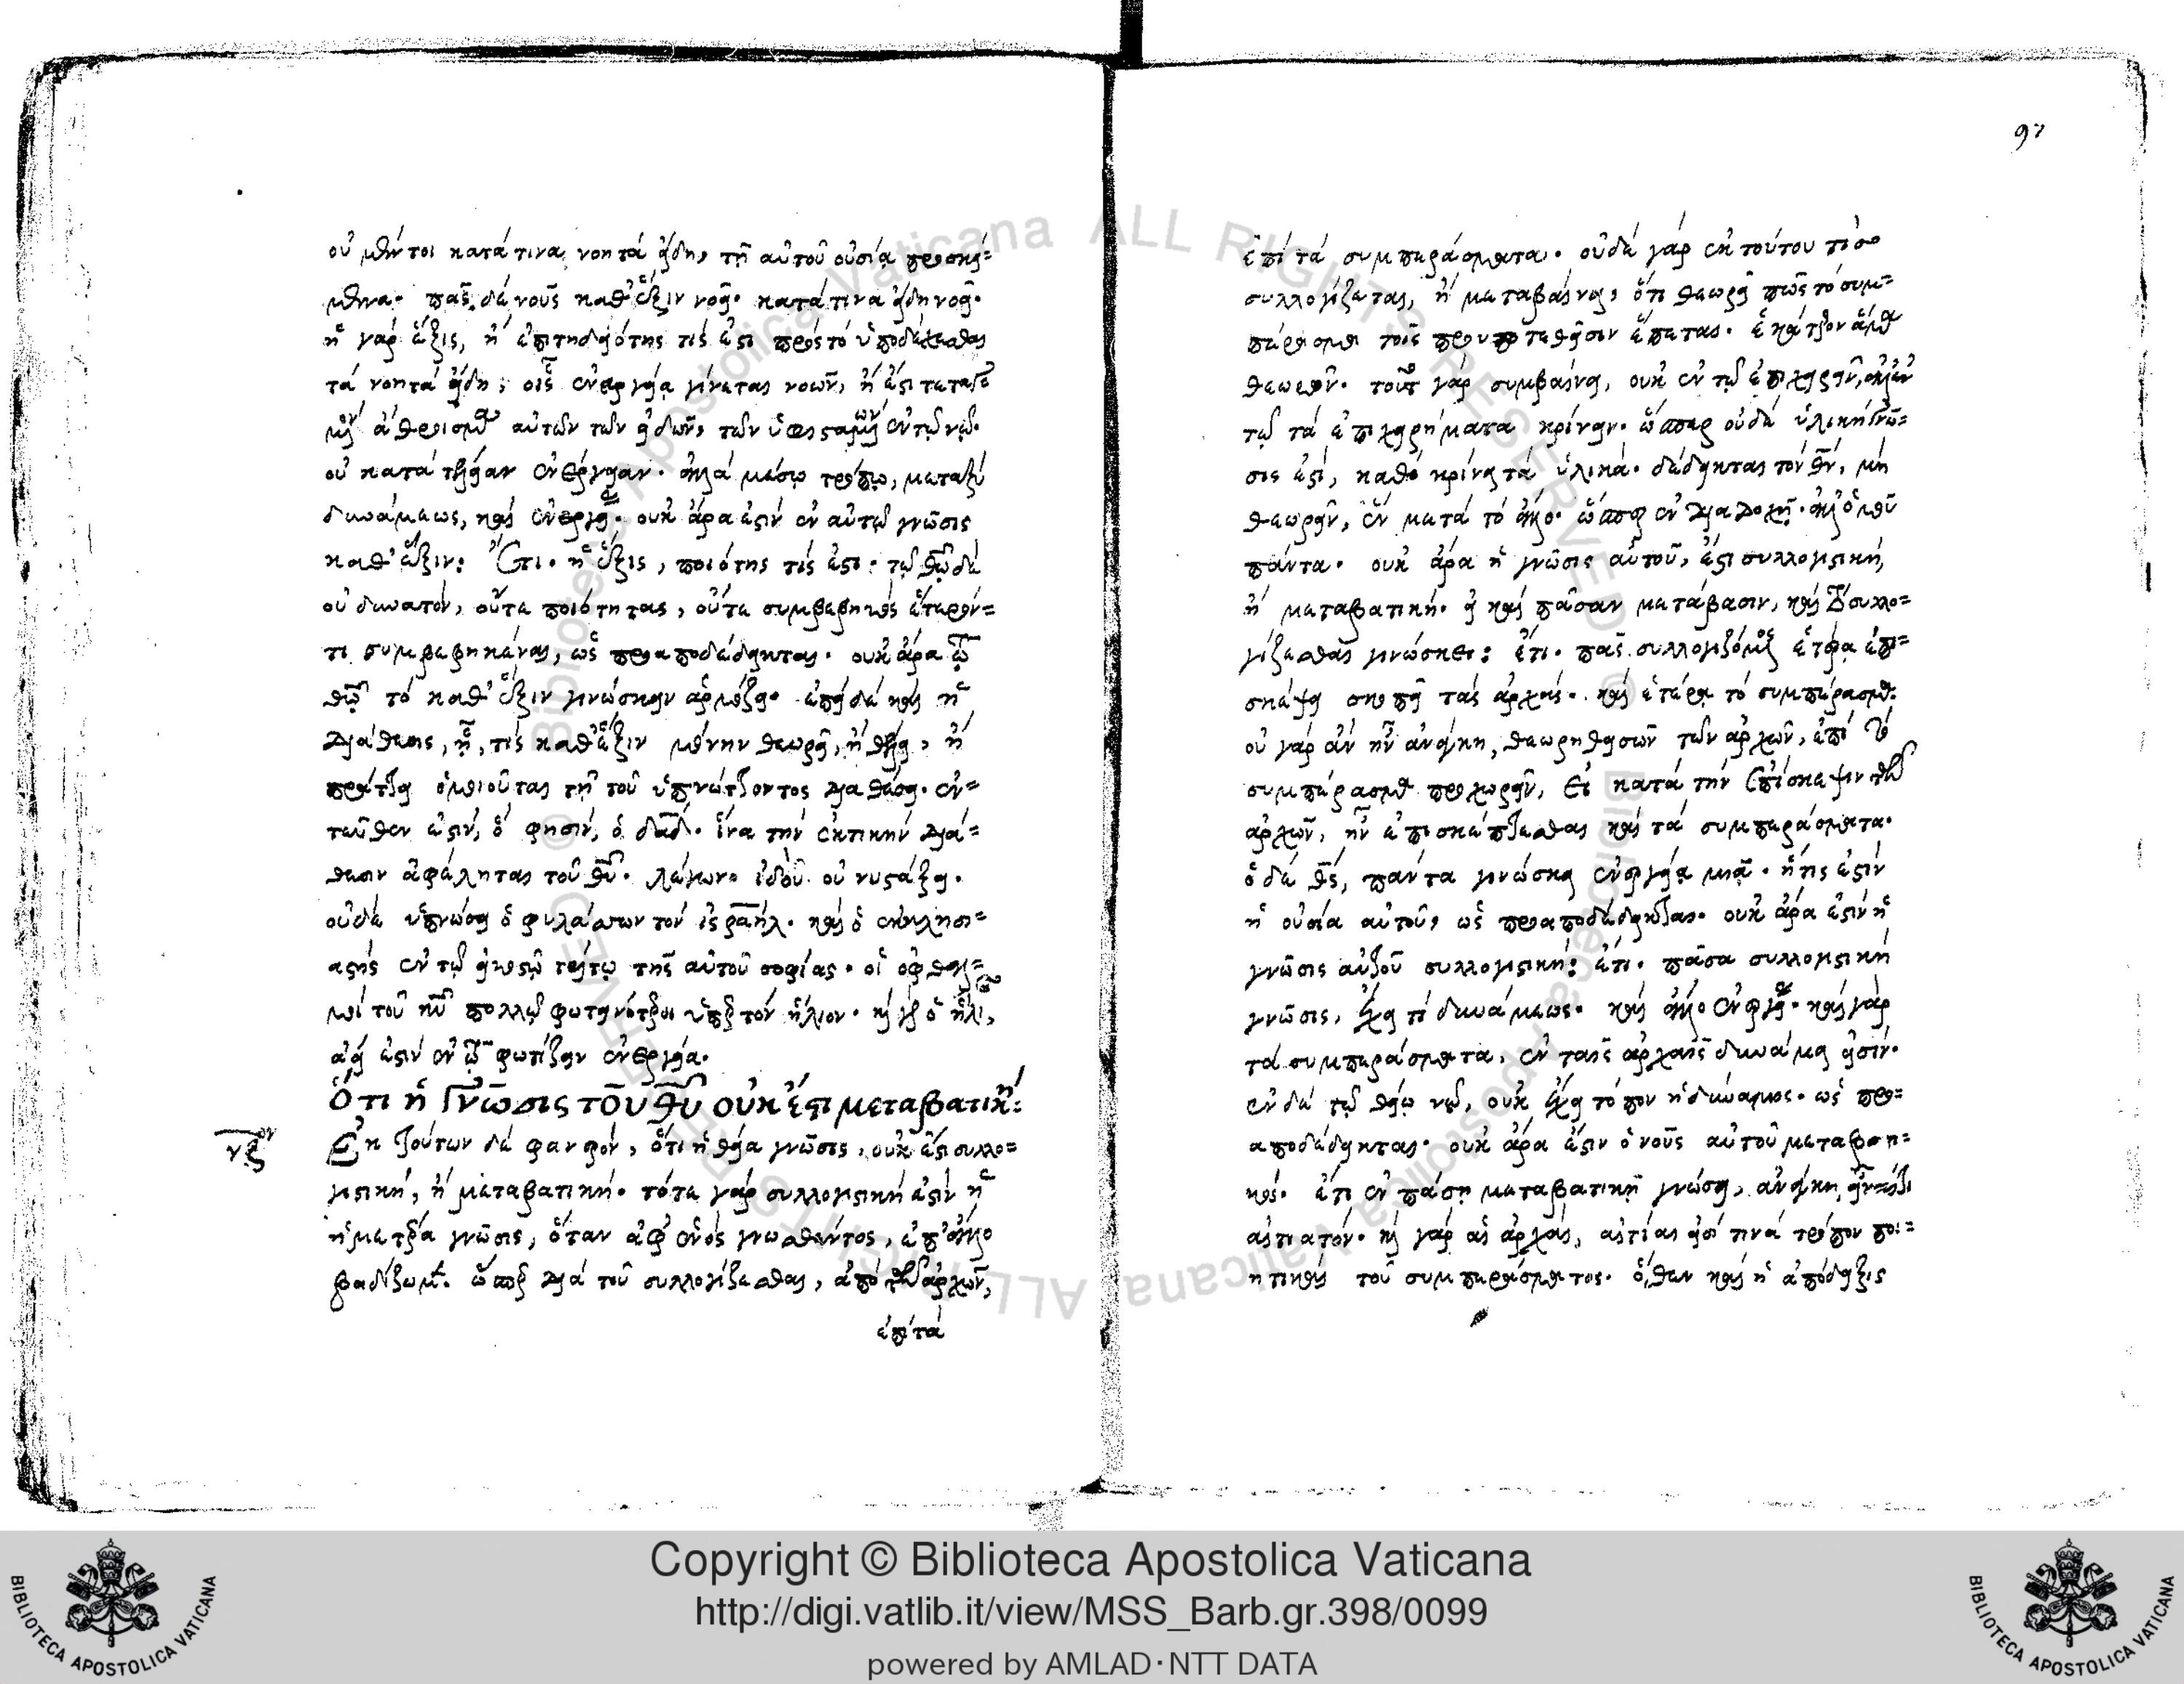 οὐ μέντοι κατά τινα νοητὰ εἴδη, τῇ αὐτοῦ οὐσίᾳ προσκεί=
μενα. πᾶς δὲ νοῦς καθ' ἕξιν νοεῖ. κατά τινα εἴδη νοεῖ.
ἢ γὰρ ἕξις, ἢ ἐπιτηδειότης τίς ἐστι πρὸς τὸ ὑποδέχεσθαι
τὰ νοητὰ εἴδη, οἷς ἐνεργείᾳ γίνεται νοῶν, ἢ ἐστὶ
ἀθροισμὸς αὐτῶν τῶν εἰδῶν, τῶν ἐν τῷ νῷ.
οὐ κατὰ τελείαν ἐνέργειαν. ἀλλὰ μέσῳ τρόπῳ, μεταξὺ
δυνάμεως, καὶ ἐνεργείας. οὐκ ἄρα ἐστὶν ἐν αὐτῷ γνῶσις
καθ' ἕξιν: Ἔτι. ἡ ἕξις, ποιότης τίς ἐστι. τῷ θῷ δὲ
οὐ δυνατὸν, οὔτε ποιότητας, οὔτε συμβεβηκὸς ἕτερόν=
τι συμβεβηκέναι, ὡς προαποδέδεικται. οὐκ ἄρα τῷ
θῷ τὸ καθ' ἕξιν γινώσκειν ἁρμόζει. ἐπεὶ δὲ καὶ ἡ
διάθεσις, ᾗ, τίς καθ' ἕξιν μόνην θεωρεῖ, ἢ θέλει, ἢ
πράττει ὁμοιοῦται τῇ τοῦ ὑπνώττοντος διαθέσει. ἐν=
τεῦθεν ἐστὶν, ὅ φησιν, ὁ δᾱδ. ἵνα τὴν ἑκτικὴν διά=
θεσιν ἀφέληται τοῦ θῡ. λέγων. ἰδοὺ οὐ νυστάξει.
οὐδὲ ὑπνώσει ὁ φυλάσσων τὸν ἰσραήλ. καὶ ὁ ἐκκλησι=
αστὴς ἐν τῷ εἰκοστῷ τρίτῳ τῆς αὐτοῦ σοφίας. οἱ ὀφθαλ=
μοὶ τοῦ κῡ πολλῷ φωτεινότεροι ὑπὲρ τὸν ἥλιον. καὶ γὰρ ὁ ἥλιος,
ἀεί ἐστιν ἐν τῷ φωτίζειν ἐνεργείᾳ.
Ὅτι ἡ Γνῶσις τοῦ θῡ οὐκ ἔστι μεταβατική:
νζον
Ἐκ τούτων δὲ φανερὸν, ὅτι ἡ θεία γνῶσις, οὐκ ἔστι συλλο=
γιστική, ἢ μεταβατική. τότε γὰρ συλλογιστική ἐστιν ἡ
ἡμετέρα γνῶσις, ὅταν ἀφ' ἑνὸς γνωσθέντος, ἐπ' ἄλλο
βαδίζωμεν. ὥσπερ διὰ τοῦ συλλογίζεσθαι, ἀπὸ τῶν ἀρχῶν,
ἐπὶ τὰ
97
ἐπὶ τὰ συμπεράσματα. οὐδὲ γὰρ ἐκ τούτου τὶς
συλλογίζεται, ἢ μεταβαίνει, ὅτι θεωρεῖ πῶς τὸ συμ=
πέρασμα τοῖς προυποτεθεῖσιν ἕπεται. ἑκάτερον ἅμα
θεωρῶν. τοῦτο γὰρ συμβαίνει, οὐκ ἐν τῷ ἐπιχειρεῖν, ἀλλ' ἐν
τῷ τὰ ἐπιχειρήματα κρίνειν. ὥσπερ οὐδὲ ὑλικὴ γνῶ=
σις ἐστὶ, καθὸ κρίνει τὰ ὑλικά. δέδεικται τὸν θν, μὴ
θεωρεῖν, ἓν μετὰ τὸ ἄλλο. ὥσπερ ἐν διαδοχῇ. ἀλλ' ὁμοῦ
πάντα. οὐκ ἄρα ἡ γνῶσις αὐτοῦ, ἐστὶ συλλογιστική,
ἢ μεταβατική. εἰ καὶ πᾶσαν μετάβασιν, καὶ τὸ συλλο=
γίζεσθαι γινώσκει: ἔτι. πᾶς συλλογιζόμενος ἑτέρᾳ ἐπι=
σκέψει σκοπεῖ τὰς ἀρχάς. καὶ ἑτέρᾳ τὸ συμπέρασμα.
οὐ γὰρ ἂν ἦν ἀνάγκη, θεωρηθεισῶν τῶν ἀρχῶν, ἐπὶ τὸ
συμπέρασμα προχωρεῖν, εἰ κατὰ τὴν ἐπίσκεψιν τῶν
ἀρχῶν, ἦν ἐπισκέπτεσθαι καὶ τὰ συμπεράσματα.
ὁ δὲ θς, πάντα γινώσκει ἐνεργείᾳ μιᾷ. ἥτις ἐστὶν
ἡ οὐσία αὐτοῦ, ὡς προαποδέδεικται. οὐκ ἄρα ἐστὶν ἡ
γνῶσις αὐτοῦ συλλογιστική: ἔτι. πᾶσα συλλογιστικὴ
γνῶσις, ἔχει τὶ δυνάμεως. καὶ ἄλλο ἐνεργείας. καὶ γὰρ
τὰ συμπεράσματα, ἐν ταῖς ἀρχαῖς δυνάμει εἰσίν.
ἐν δὲ τῷ θείῳ νῷ, οὐκ ἔχει τόπον ἡ δύναμις. ὡς προ=
αποδέδεικται. οὐκ ἄρα ἐστὶν ὁ νοῦς αὐτοῦ μεταβατι=
κός. ἔτι ἐν πάσῃ μεταβατικῇ γνώσει, ἀνάγκη
αἰτιατόν. καὶ γὰρ αἱ ἀρχαὶ, αἰτίαι εἰσί τινὰ τρόπον ποι=
ητικαὶ τοῦ συμπεράσματος. ὅθεν καὶ ἡ ἀπόδειξις
Copyright © Biblioteca Apostolica Vaticana
http://digi.vatlib.it/view/MSS_Barb.gr.398/0099
powered by AMLAD·NTT DATA